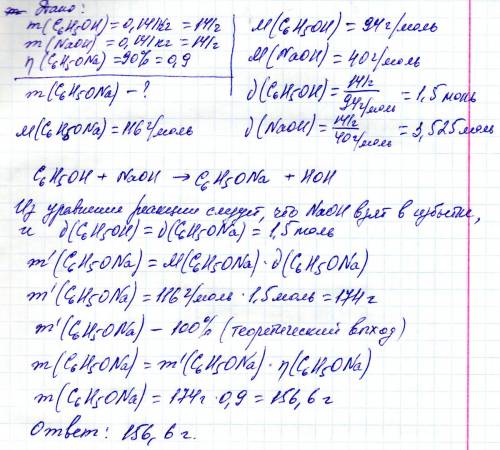 Дано:
m(C6H5OH) = 0,141кг = 141г
m(NaOH) = 0,141кг = 141г
η(C6H5ONa) = 90% = 0,9
m(C6H5ONa) – ?
M(C6H5ONa) = 116 г/моль
M(C6H5OH) = 94 г/моль
M(NaOH) = 40 г/моль
ν(C6H5OH) = 141г / 94 г/моль = 1,5 моль
ν(NaOH) = 141г / 40 г/моль = 3,525 моль
C6H5OH + NaOH → C6H5ONa + HOH
Из уравнения реакции следует, что NaOH взят в избытке,
и ν(C6H5OH) = ν(C6H5ONa) = 1,5 моль
m'(C6H5ONa) = M(C6H5ONa) · ν(C6H5ONa)
m'(C6H5ONa) = 116 г/моль · 1,5 моль = 174 г
m'(C6H5ONa) – 100% (теоретический выход)
m(C6H5ONa) = m'(C6H5ONa) · η(C6H5ONa)
m(C6H5ONa) = 174г · 0,9 = 156,6 г
Ответ: 156,6 г.